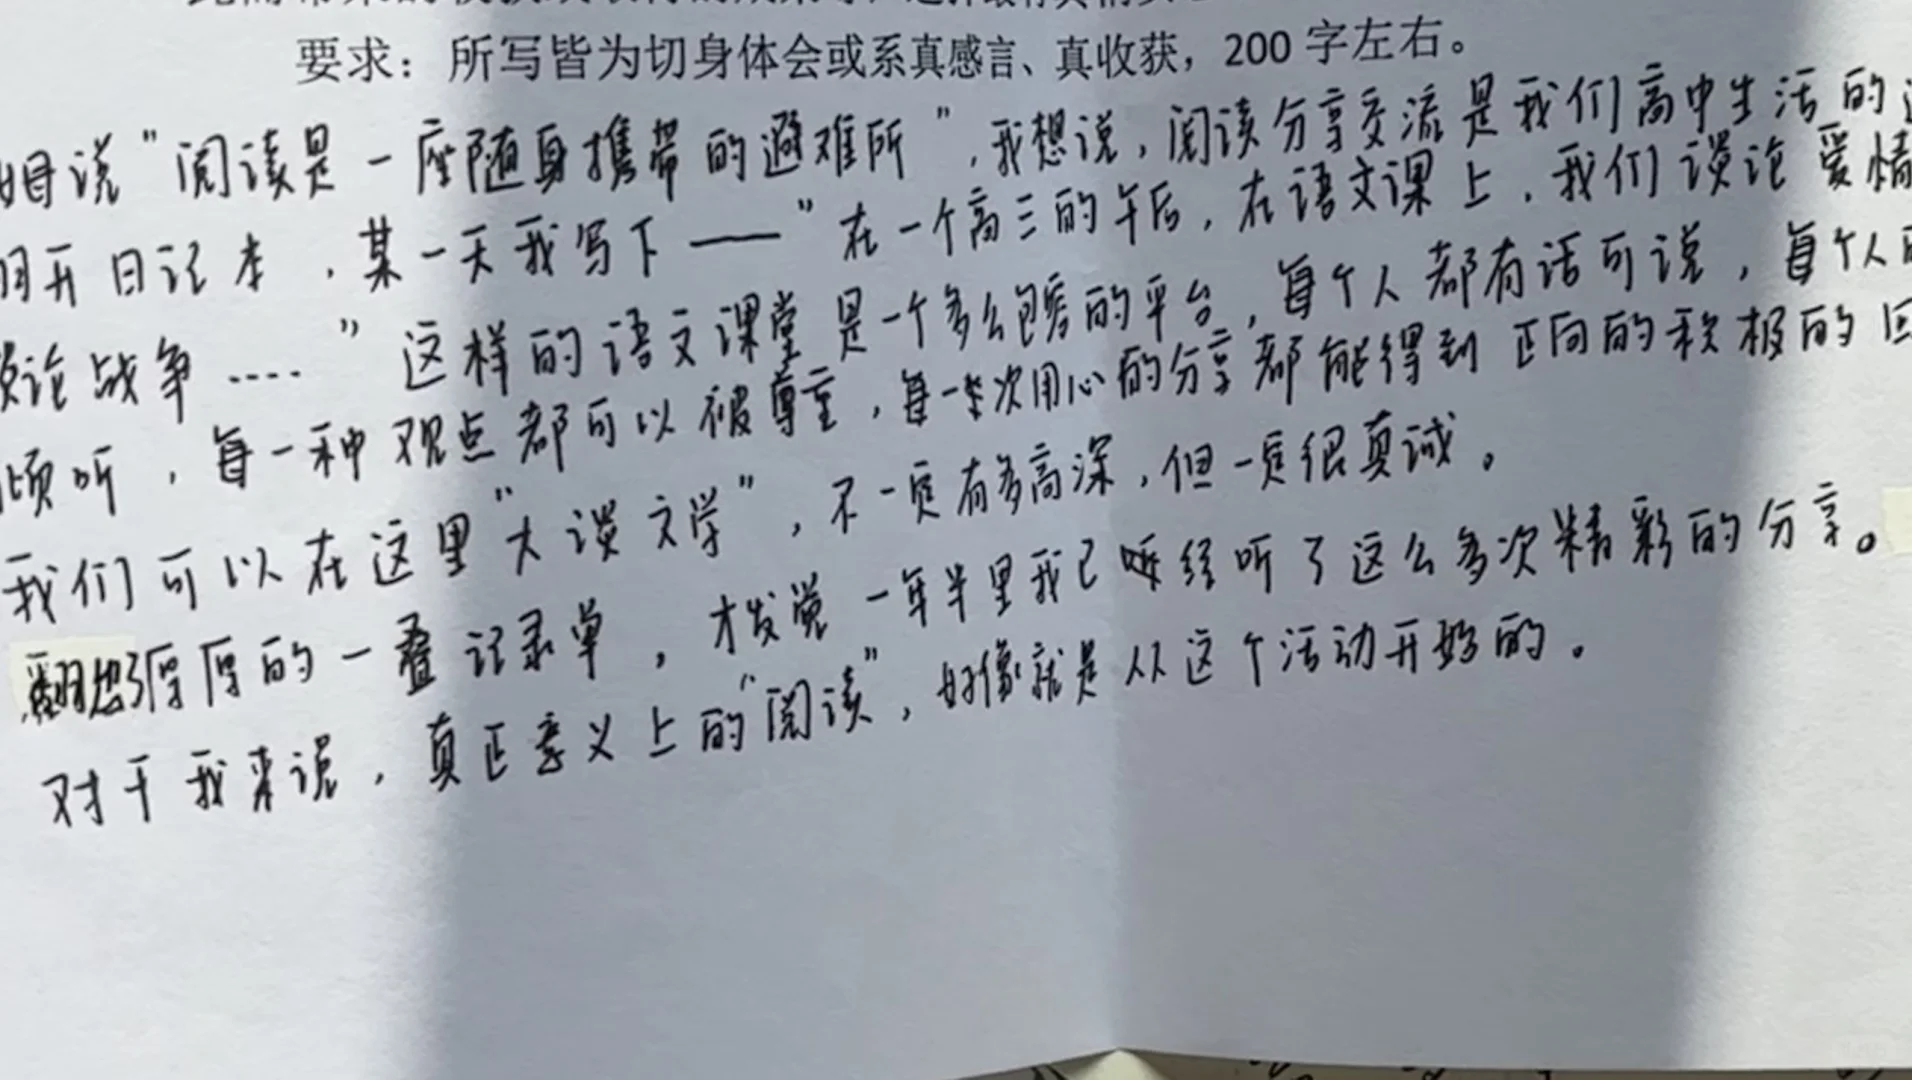 要求：所写皆为切身体会或系真感言、真收获，200 字左右。
姆说“阅读是一座随身携带的避难所”，我想说，阅读分享交流是我们高中生活的
开日记本，某一天我写下——”在一个高三的午后，在语文课上，我们谈论爱情
论战争....”这样的语文课堂是一个多么包容的平台，每个人都有话可说，每个人
倾听，每一种观点都可以被尊重，每一次用心的分享都能得到正向的积极的
我们可以在这里“大谈文学”，不一定有多高深，但一定很真诚。
厚厚的一叠记录单，才发觉一年半里我已经听了这么多次精彩的分享。
对于我来说，真正意义上的“阅读”，好像就是从这个活动开始的。